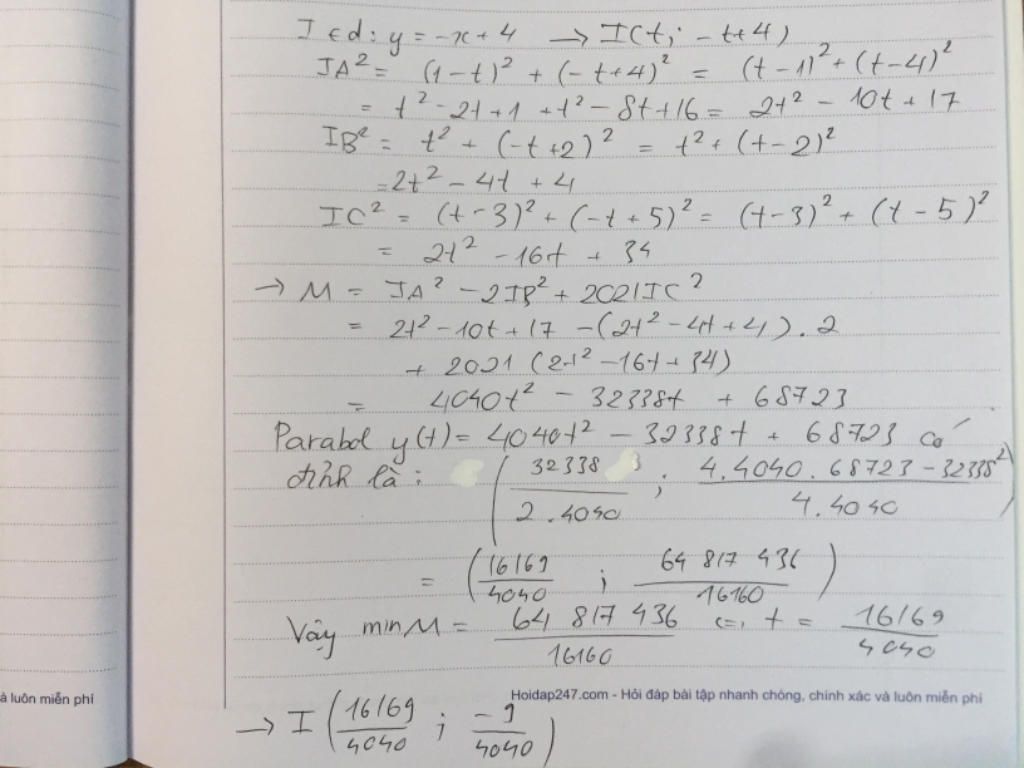 I ∈ d: y = -x + 4 → I(t; -t+4)
IA² = (1-t)² + (-t+4)² = (t-1)² + (t-4)²
= t² - 2t + 1 + t² - 8t + 16 = 2t² - 10t + 17
IB² = t² + (-t+2)² = t² + (t-2)²
= 2t² - 4t + 4
IC² = (t-3)² + (-t+5)² = (t-3)² + (t-5)²
= 2t² - 16t + 34
→ M = IA² - 2IB² + 2021IC²
= 2t² - 10t + 17 - (2t² - 4t + 4) . 2
+ 2021 (2t² - 16t + 34)
= 4040t² - 32338t + 68723
Parabol y(t) = 4040t² - 32338t + 68723 có
đỉnh là: (32338 / 2.4040 ; 4.4040.68723 - 32338² / 4.4040)
= (16169 / 4040 ; 64 817 436 / 16160)
Vậy min M = 64 817 436 / 16160 <=> t = 16169 / 4040
à luôn miễn phí
Hoidap247.com - Hỏi đáp bài tập nhanh chóng, chính xác và luôn miễn phí
→ I (16169 / 4040 ; -9 / 4040)